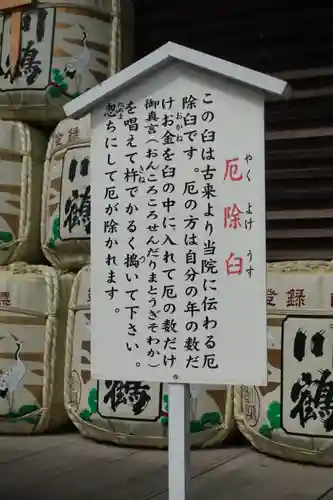 厄除臼
やくよけうす
この臼は古来より当院に伝わる厄
除臼です。厄の方は自分の年の数だ
けお金を臼の中に入れて厄の数だけ
おかね
御真言(おんころころせんだりまとうぎそわか)
を唱えて杵でかるく搗いて下さい。
きね
つ
忽ちにして厄が除かれます。
たちま
鶴
鶴
鶴
登録
鶴